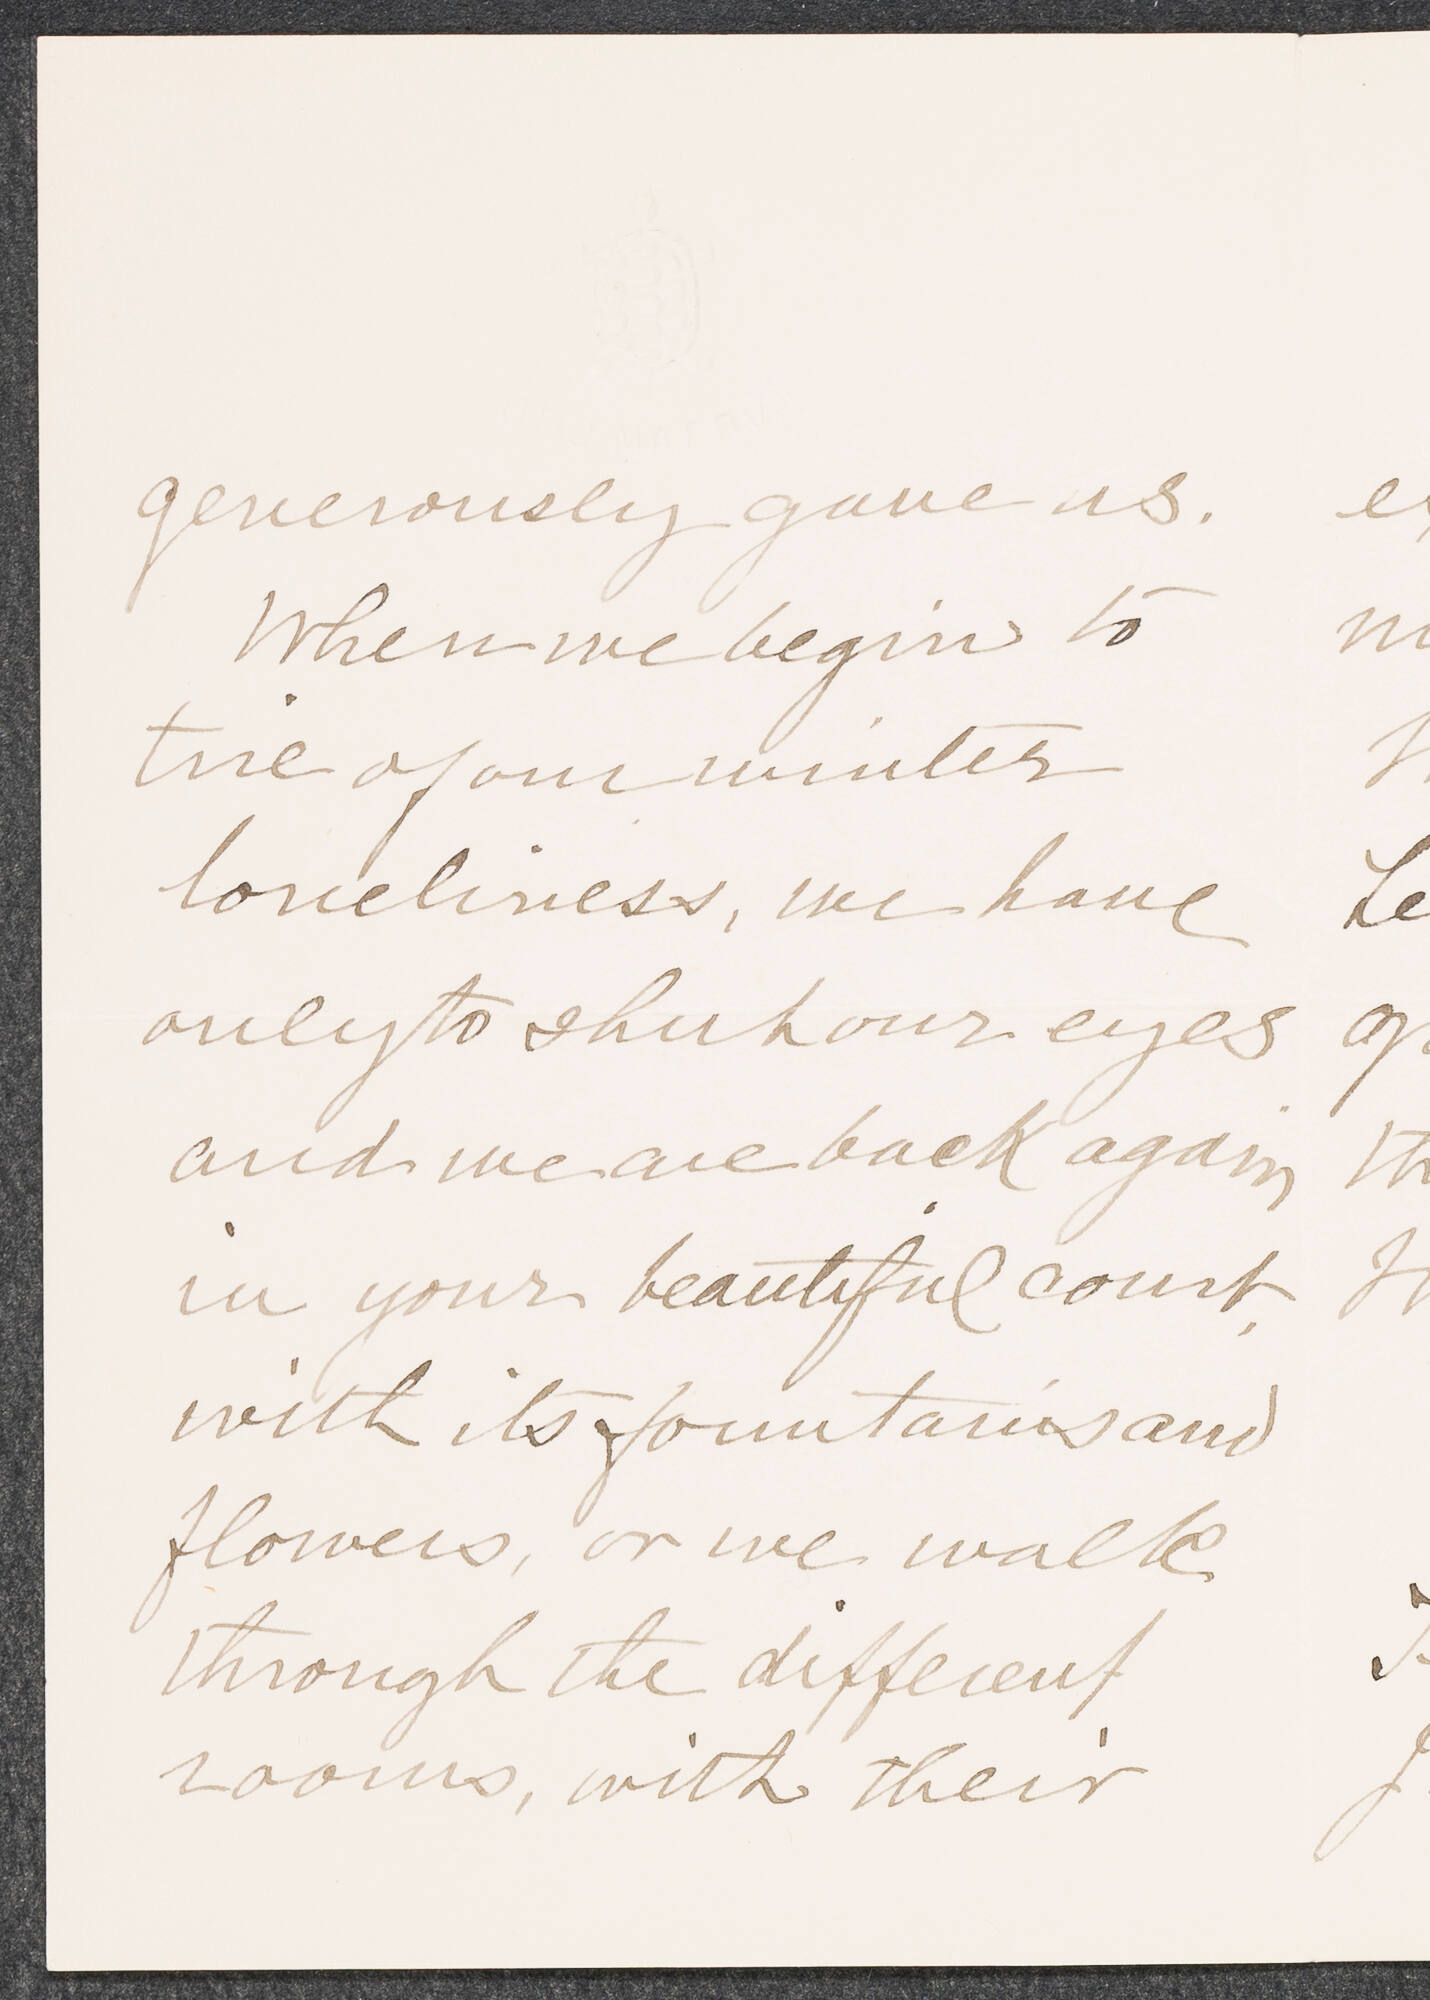 generously gave us.
When we begin to
tire of our winter
loneliness, we have
only to shut our eyes
and we are back again
in your beautiful court,
with its fountains and
flowers, or we walk
through the different
rooms, with their